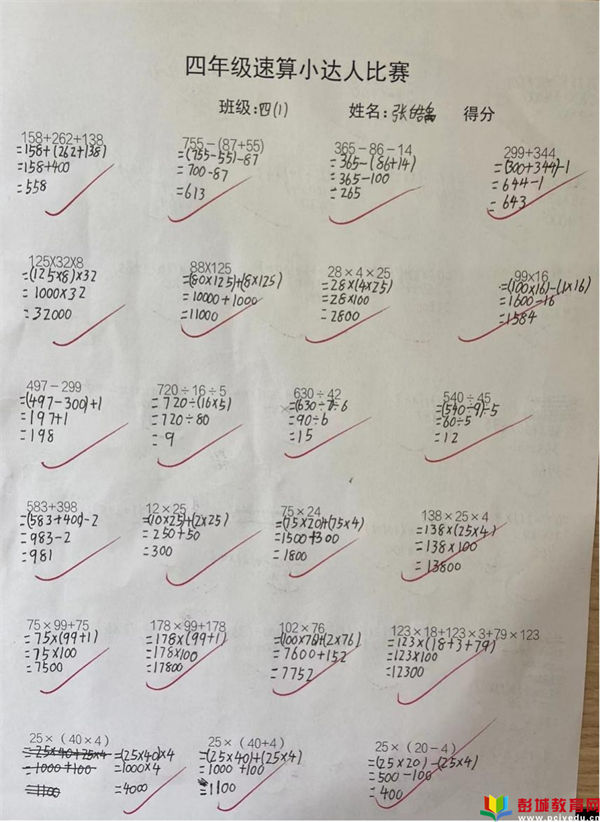 四年级速算小达人比赛
班级:四(1) 姓名:张皓 得分
158+262+138
=158+(262+138)
=158+400
=558
755-(87+55)
=(755-55)-87
=700-87
=613
365-86-14
=365-(86+14)
=365-100
=265
299+344
=(300+344)-1
=644-1
=643
125X32X8
=(125×8)×32
=1000×32
=32000
88X125
=(80×125)+(8×125)
=10000+1000
=11000
28×4×25
=28×(4×25)
=28×100
=2800
99×16
=(100×16)-(1×16)
=1600-16
=1584
497-299
=(497-300)+1
=197+1
=198
720÷16÷5
=720÷(16×5)
=720÷80
=9
630÷42
=(630÷7)÷6
=90÷6
=15
540÷45
=(540÷9)÷5
=60÷5
=12
583+398
=(583+400)-2
=983-2
=981
12×25
=(10×25)+(2×25)
=250+50
=300
75×24
=(75×20)+(75×4)
=1500+300
=1800
138×25×4
=138×(25×4)
=138×100
=13800
75×99+75
=75×(99+1)
=75×100
=7500
178×99+178
=178×(99+1)
=178×100
=17800
102×76
=(100×76)+(2×76)
=7600+152
=7752
123×18+123×3+79×123
=123×(18+3+79)
=123×100
=12300
25×(40×4)
=25×40+25×4
=1000+100
=1100
=(25×40)×4
=1000×4
=4000
25×(40+4)
=(25×40)+(25×4)
=1000+100
=1100
25×(20-4)
=(25×20)-(25×4)
=500-100
=400
彭城教育网
www.pcjyedu.cn